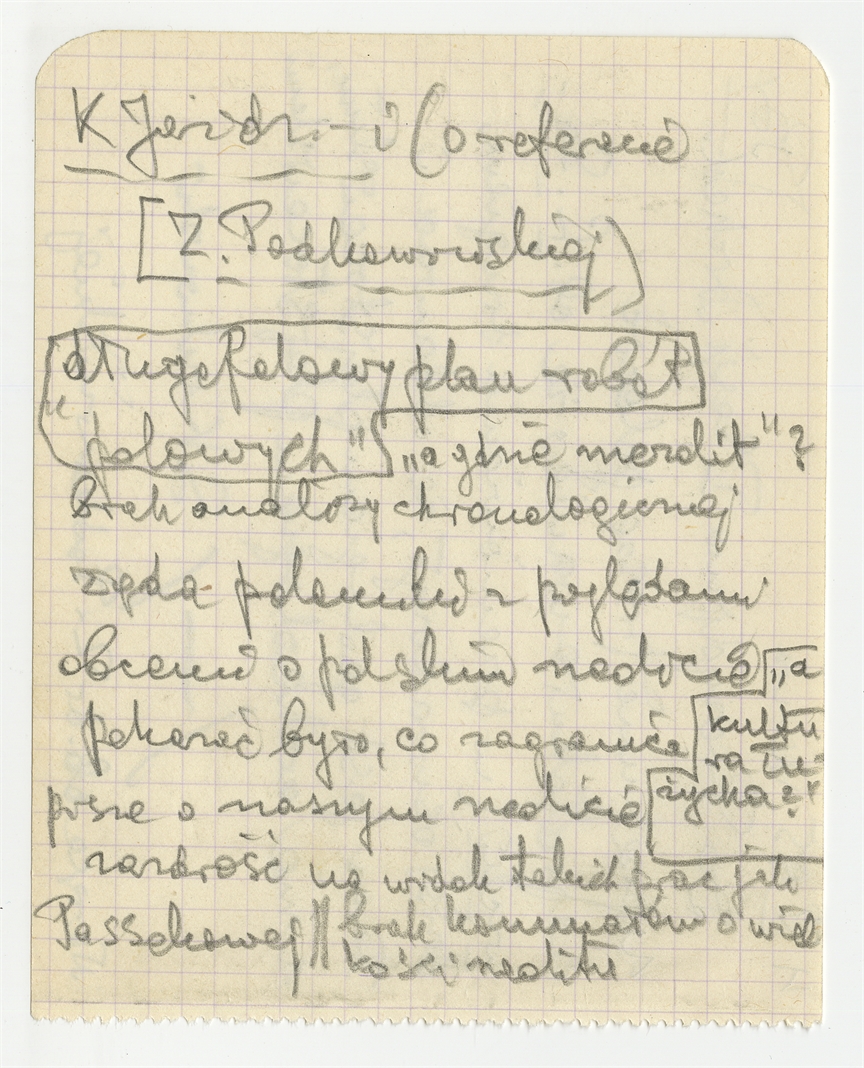 K Jażdż. – i (o referacie
[Z. Podkowińskiej)
długofalowy plan robót
"polowych" „a gdzie meralit"?
Brak analozy chronologicznej
żąda polemiki z poglądami
obcemi o polskim neolicie „a
pokazać było, co zagranica kultu
ra łu-
pisze o naszym neolicie życka?"
zazdrość na widok takich prac jak
Passekowej || brak komunatów o wiel
kości neolitu